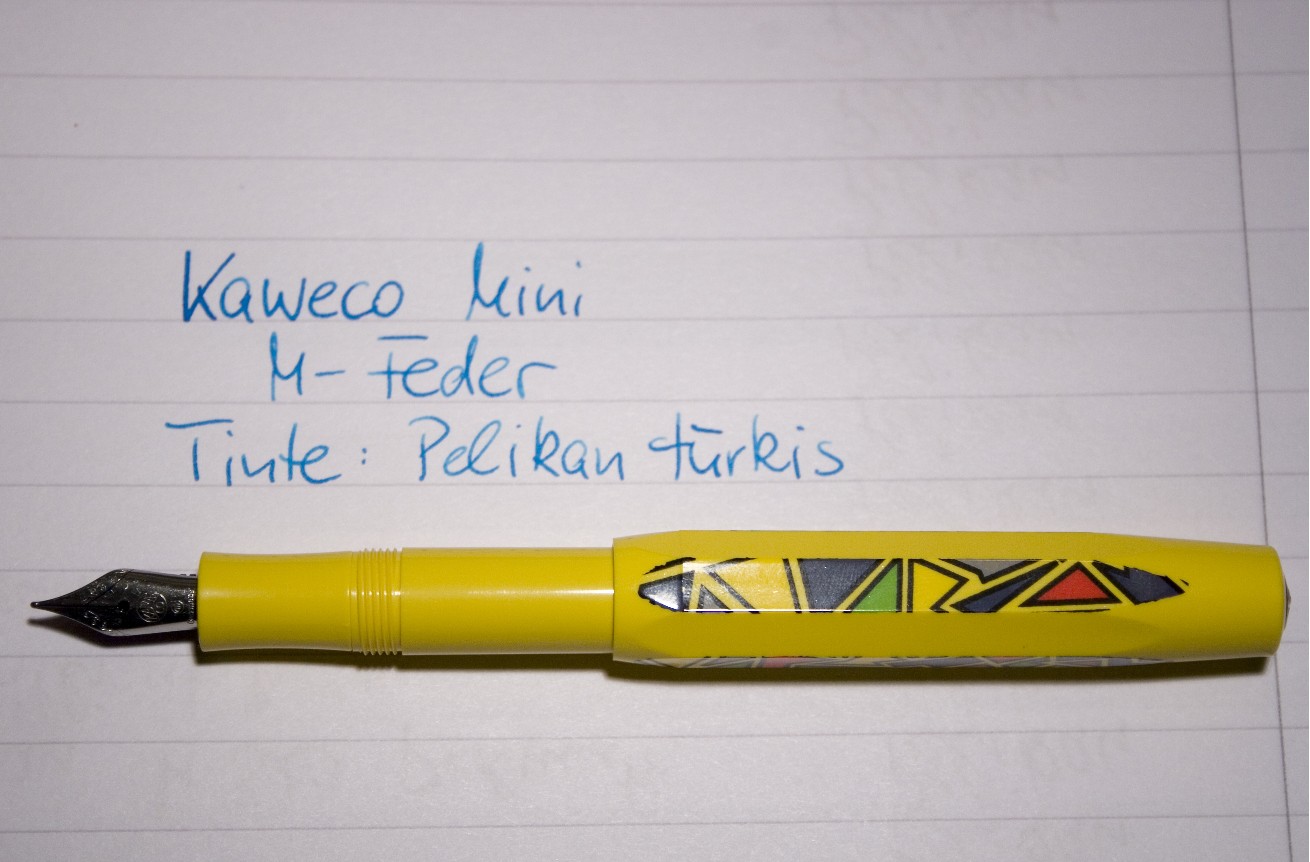 Kaweco Mini
M-Feder
Tinte: Pelikan türkis